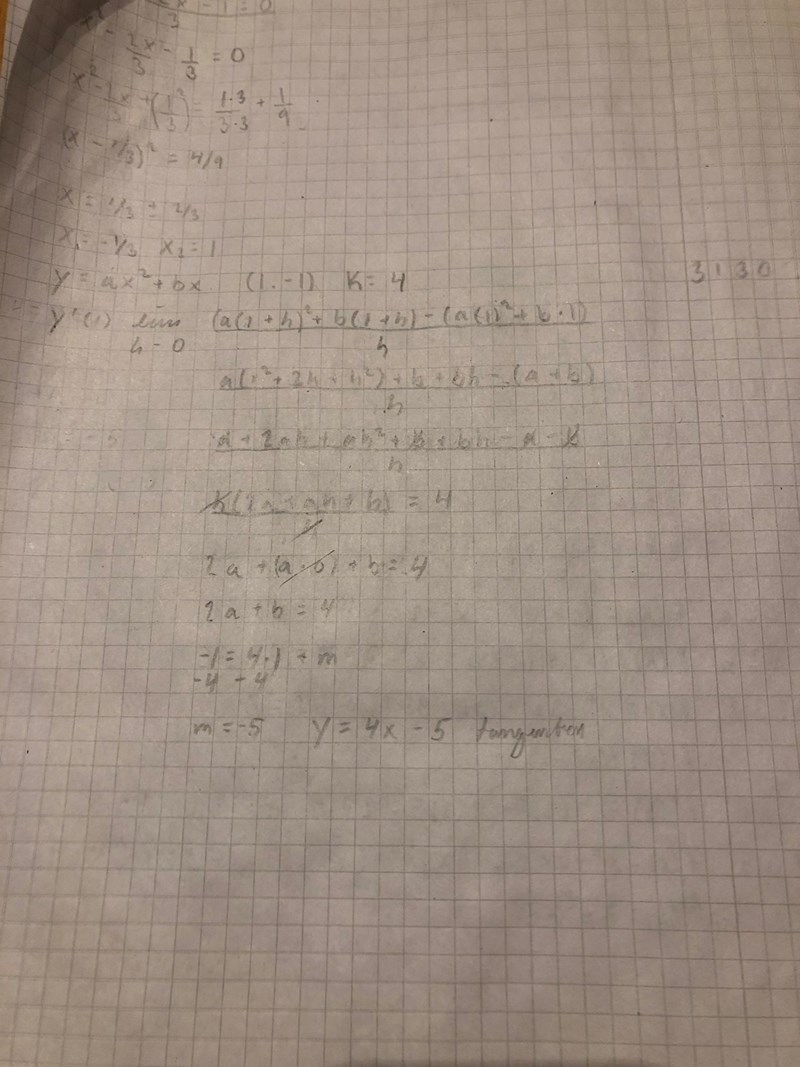 x - 1 = 0
3
x² - 2x/3 - 1/3 = 0
x² - 2x/3 + (1/3)² = 1·3/3·3 + 1/9
(x - 1/3)² = 4/9
x = 1/3 ± 2/3
x₁ = -1/3 x₂ = 1
y = ax² + bx (1.-1) K = 4
3130
y'(1) lim (a(1+h)² + b(1+h) - (a(1)² + b·1)
h - 0 h
a(1² + 2h + h²) + b + bh - (a + b)
h
a + 2ah + ah² + b + bh - a - b
h
h(2a + ah + b) = 4
h
2a + (a·0) + b = 4
2a + b = 4
-1 = 4·1 + m
-4 + 4
m = -5 y = 4x - 5 tangenten